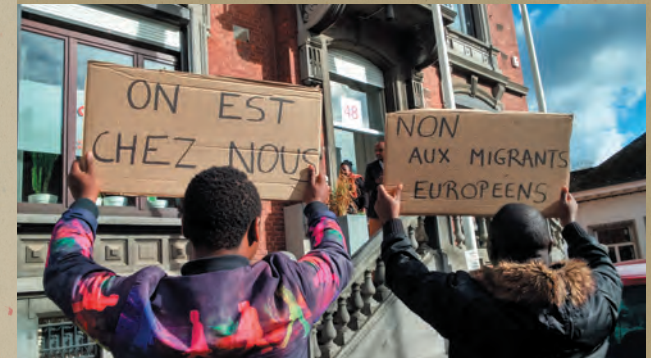 ON EST
CHEZ NOUS
48
NON
AUX MIGRANTS
EUROPEENS